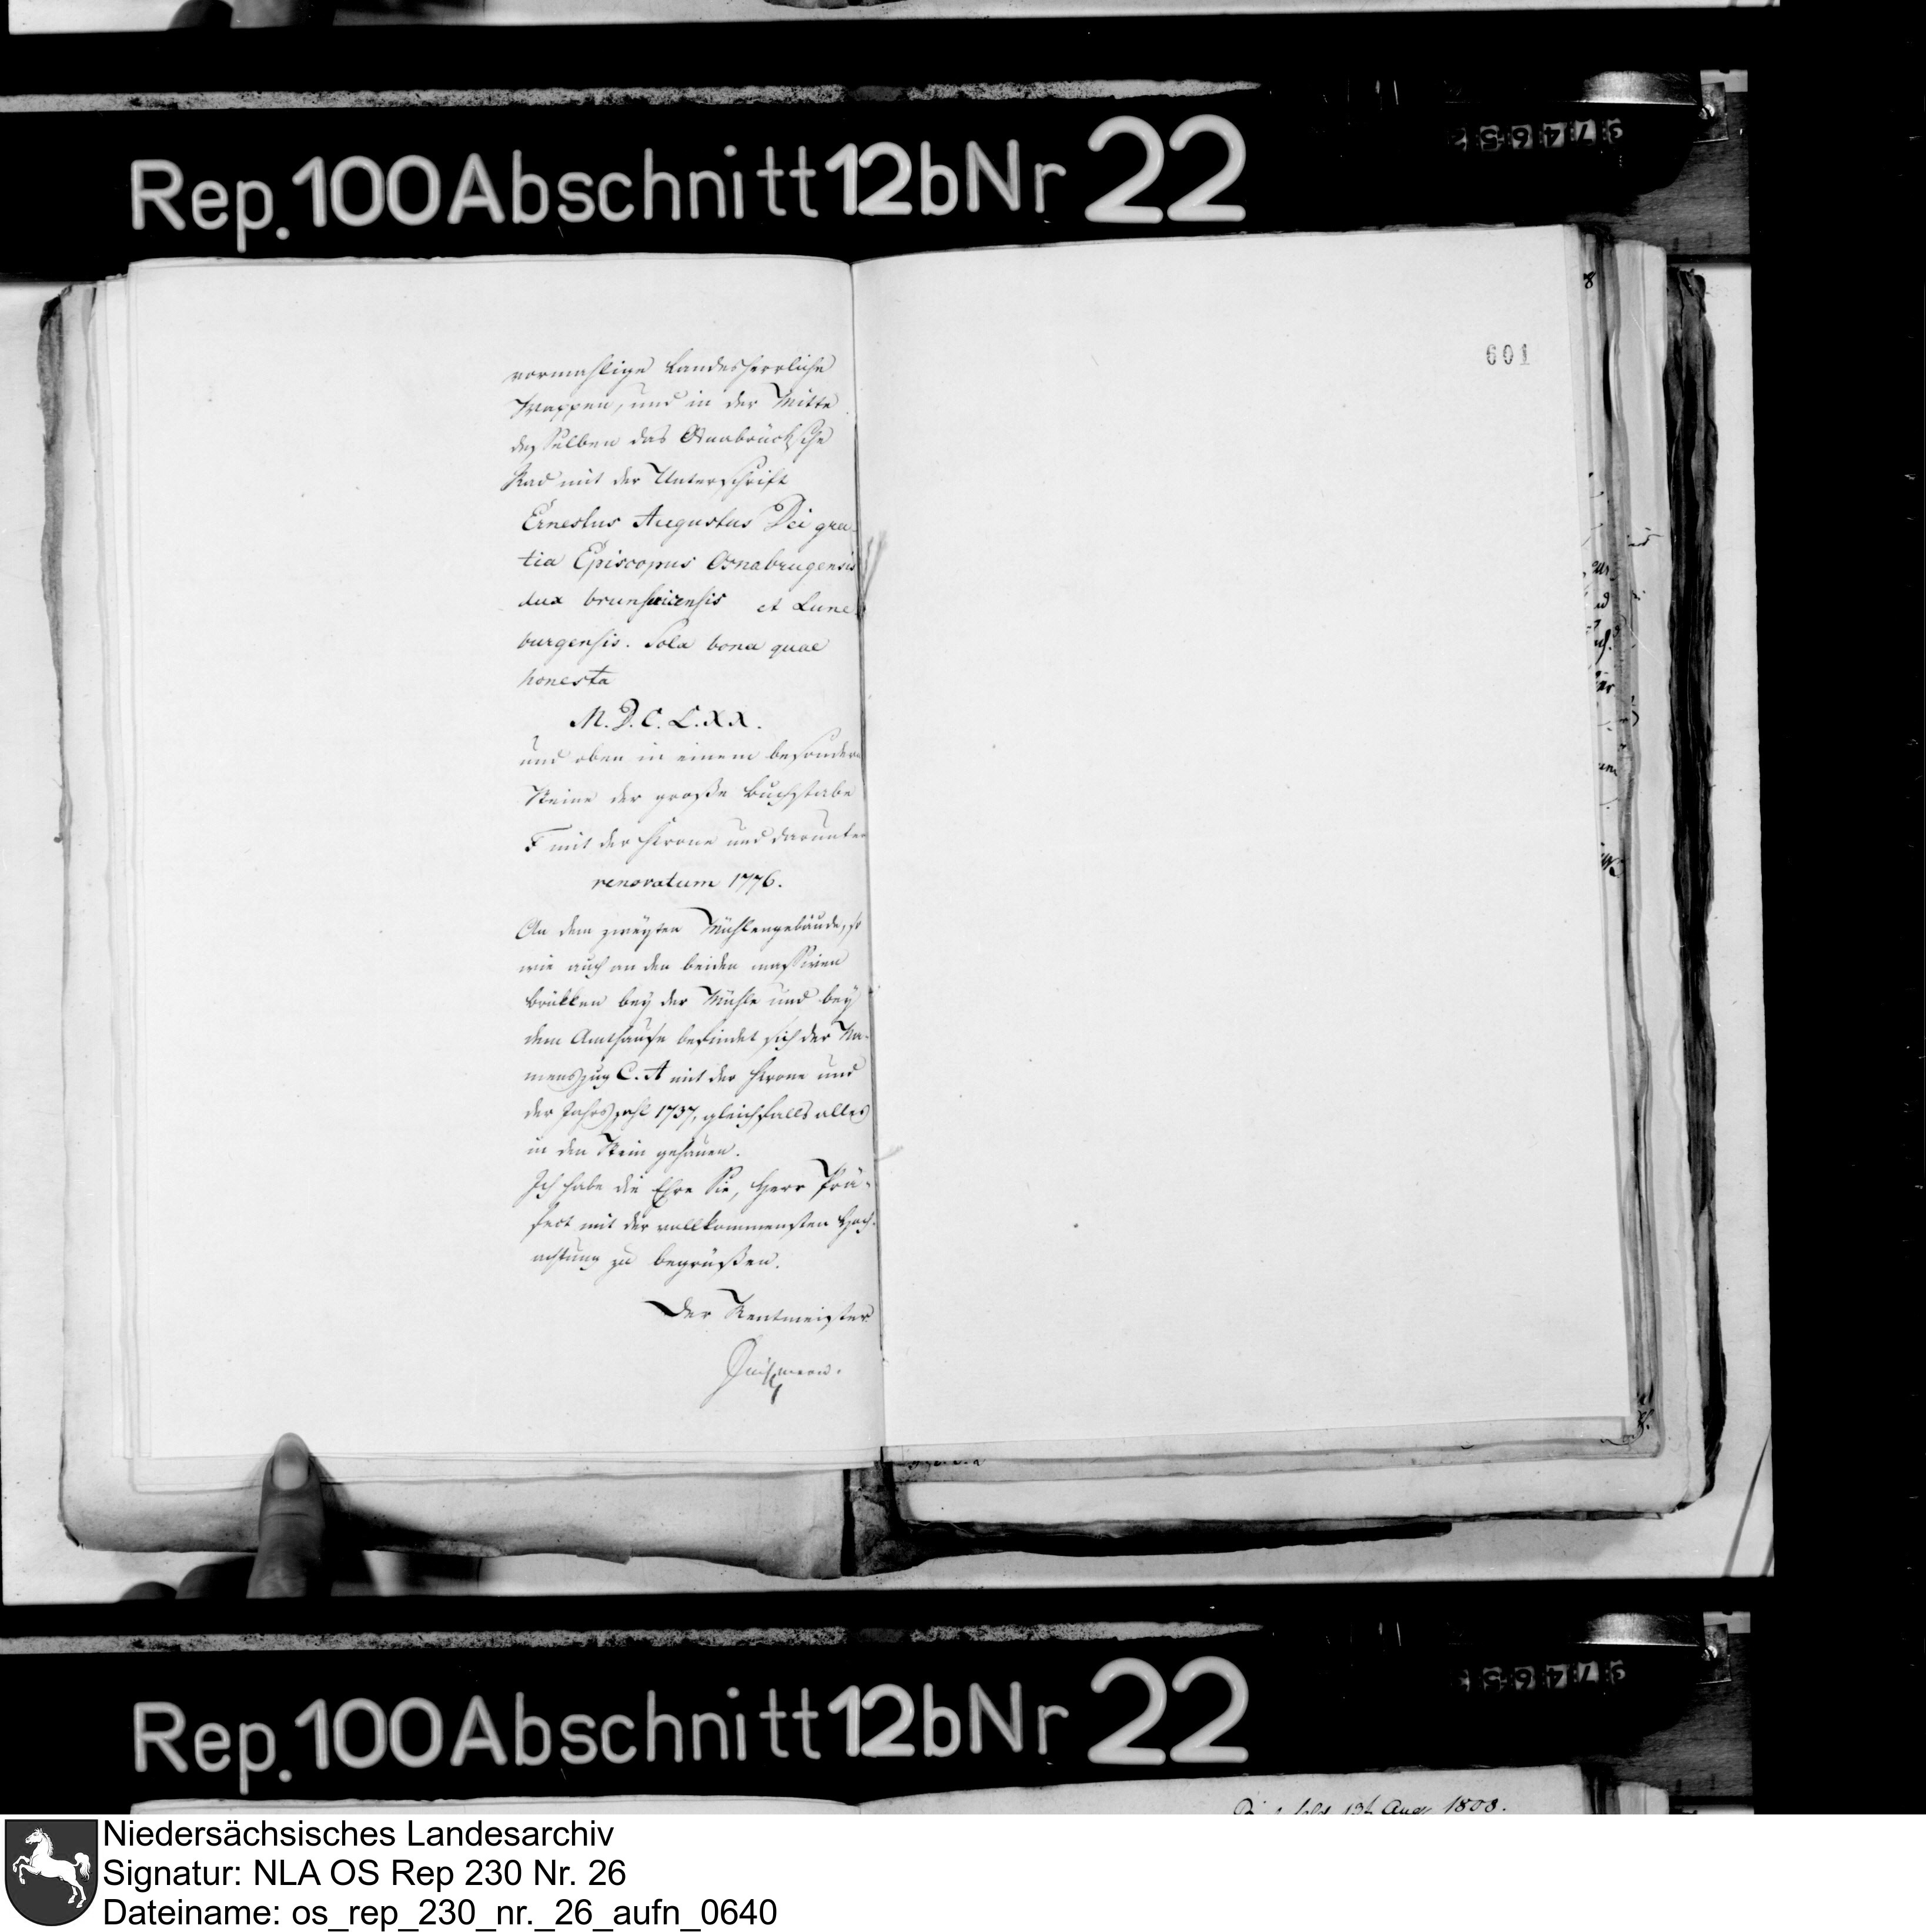 Rep. 100 Abschnitt 12b Nr 22
601
vormahlige Landesherrliche
Wappen, und in der Mitte
desselben das Osnabrücksche
Rad mit der Unterschrift
Ernestus Augustus Dei gra-
tia Episcopus Osnabrugensis
dux brunsvicensis et Lune
burgensis. Sola bona quae
honesta
M.D.C.L.XX.
und oben in einem besondern
Steine der große Buchstabe
F mit der Krone und darunter
renovatum 1776.
An dem zweyten Mühlengebäude, so
wie auch an den beiden massiven
Brükken bey der Mühle und bey
dem Amthause befindet sich der Na-
menszug C. A mit der Krone und
der Jahrszahl 1737, gleichfalls alles
in den Stein gehauen.
Ich habe die Ehre Sie, Herr Prä-
fect mit der vollkommensten Hoch-
achtung zu begrüßen.
Der Rentmeister
Rep. 100 Abschnitt 12b Nr 22
Aug 1808.
Niedersächsisches Landesarchiv
Signatur: NLA OS Rep 230 Nr. 26
Dateiname: os_rep_230_nr._26_aufn_0640